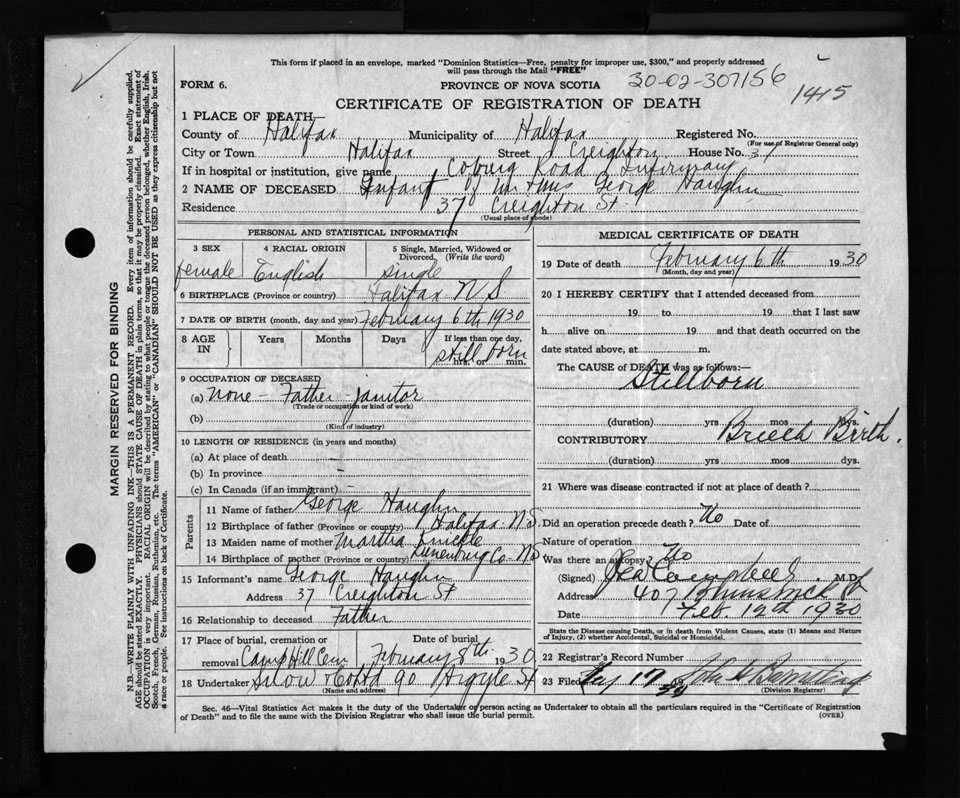 This form if placed in an envelope, marked "Dominion Statistics—Free, penalty for improper use, $300," and properly addressed
will pass through the Mail "FREE"
FORM 6.
PROVINCE OF NOVA SCOTIA
30-02-307156
1415
CERTIFICATE OF REGISTRATION OF DEATH
1 PLACE OF DEATH—
County of Halifax Municipality of Halifax Registered No.
(For use of Registrar General only)
City or Town Halifax Street Creighton House No. 37
If in hospital or institution, give name Coburg Road Infirmary
2 NAME OF DECEASED Infant of Mr & Mrs George Haughn
Residence 37 Creighton St.
(Usual place of abode)
MARGIN RESERVED FOR BINDING
N.B.—WRITE PLAINLY WITH UNFADING INK—THIS IS A PERMANENT RECORD. Every item of information should be carefully supplied.
AGE should be stated EXACTLY. PHYSICIANS should STATE CAUSE OF DEATH in plain terms, so that it may be properly classified. Exact statement of
OCCUPATION is very important. RACIAL ORIGIN will be described by stating to what people or tongue the deceased person belonged, whether English, Irish,
Scotch, French, German, Russian, Ruthenian, etc. The terms "AMERICAN" or "CANADIAN" SHOULD NOT BE USED as they express citizenship but not
a race or people. See instructions on back of Certificate.
PERSONAL AND STATISTICAL INFORMATION
3 SEX
female
4 RACIAL ORIGIN
English
5 Single, Married, Widowed or
Divorced, (Write the word)
single
6 BIRTHPLACE (Province or country) Halifax N S
7 DATE OF BIRTH (month, day and year) February 6th 1930
8 AGE
IN
Years
Months
Days
If less than one day,
still born
hrs. or min.
9 OCCUPATION OF DECEASED
(a) none - Father - janitor
(Trade or occupation or kind of work)
(b)
(Kind of industry)
10 LENGTH OF RESIDENCE (in years and months)
(a) At place of death
(b) In province
(c) In Canada (if an immigrant)
Parents
11 Name of father George Haughn
12 Birthplace of father (Province or country) Halifax N.S.
13 Maiden name of mother Martha
14 Birthplace of mother (Province or country) Lunenburg Co. NS
15 Informant's name George Haughn
Address 37 Creighton St
16 Relationship to deceased Father
17 Place of burial, cremation or
removal Camp Hill Cem
Date of burial
February 8th 1930
18 Undertaker Snow & Co Ltd 90 Argyle St
(Name and address)
MEDICAL CERTIFICATE OF DEATH
19 Date of death February 6th 1930
(Month, day and year)
20 I HEREBY CERTIFY that I attended deceased from
19 to 19 that I last saw
h alive on 19 and that death occurred on the
date stated above, at m.
The CAUSE of DEATH was as follows:—
Stillborn
(duration) yrs mos dys.
CONTRIBUTORY Breech Birth.
(duration) yrs mos dys.
21 Where was disease contracted if not at place of death?
Did an operation precede death? No Date of
Nature of operation
Was there an autopsy? No
(Signed) Campbell M.D.
Address 407 Brunswick St
Date Feb. 12th 1930
State the Disease causing Death, or in death from Violent Causes, state (1) Means and Nature
of Injury, (2) whether Accidental, Suicidal or Homicidal.
22 Registrar's Record Number
23 Filed 17
(Division Registrar)
Sec. 46—Vital Statistics Act makes it the duty of the Undertaker or person acting as Undertaker to obtain all the particulars required in the "Certificate of Registration
of Death" and to file the same with the Division Registrar who shall issue the burial permit.
(OVER)